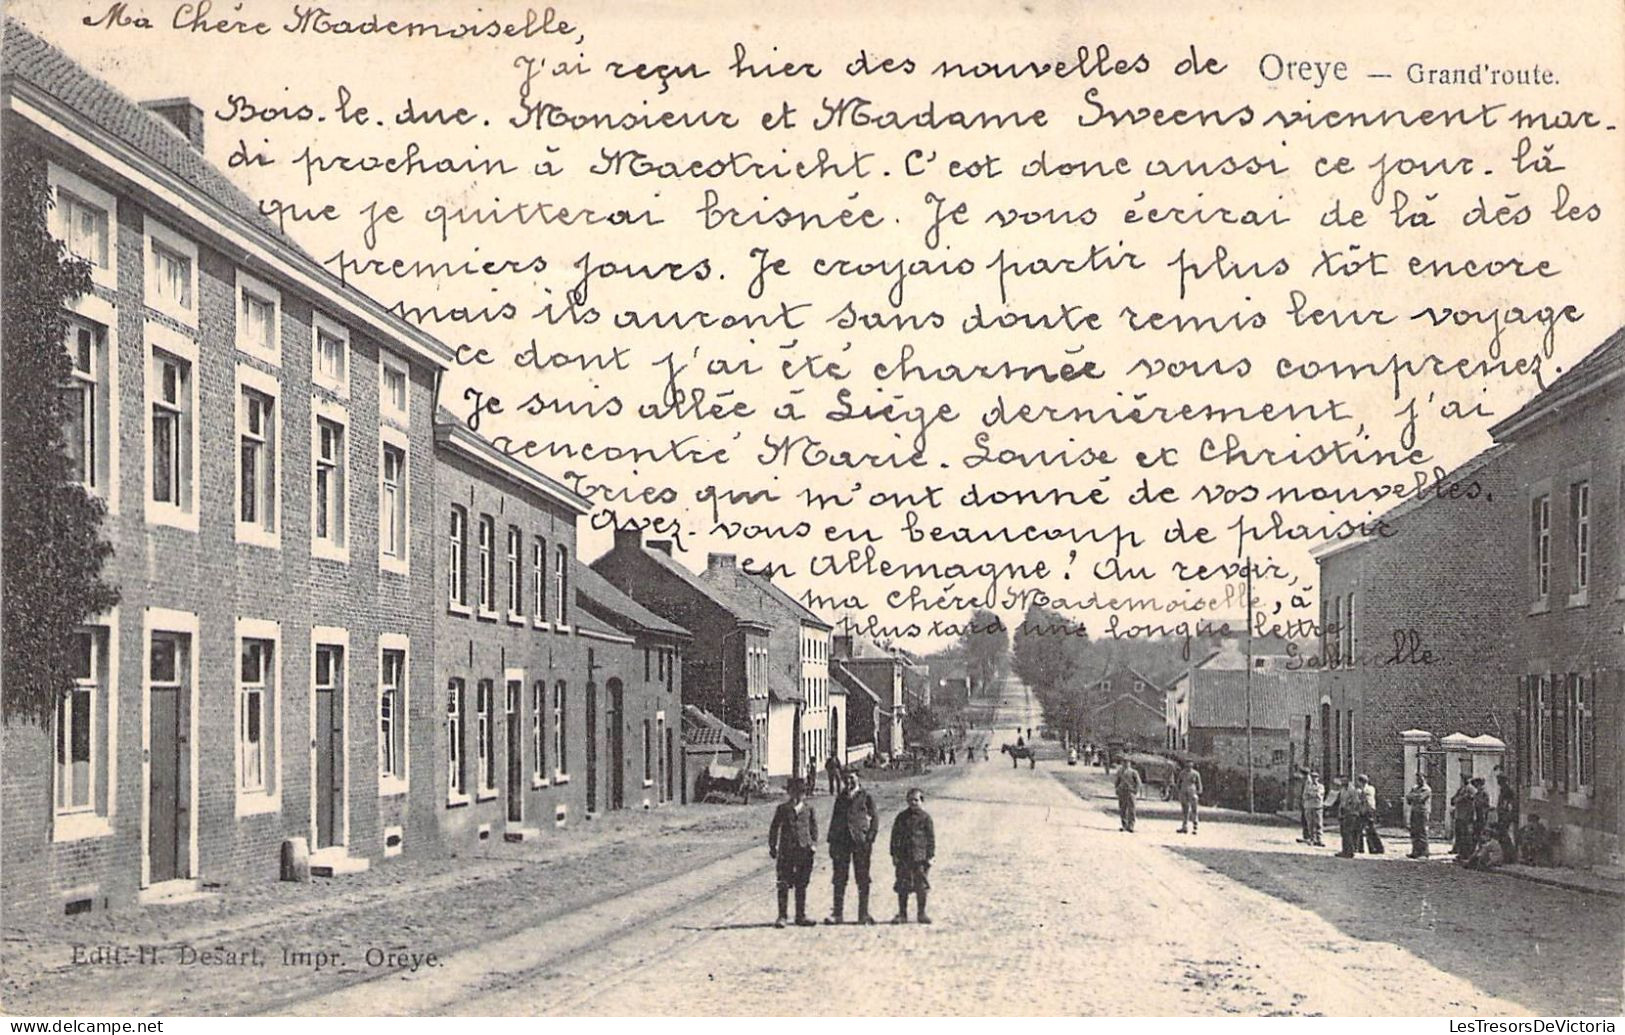 Ma Chère Mademoiselle,
J'ai reçu hier des nouvelles de
Oreye — Grand'route.
Bois-le-duc. Monsieur et Madame Sweens viennent mar-
di prochain à Maestricht. C'est donc aussi ce jour-là
que je quitterai brisnée. Je vous écrirai de là dés les
premiers jours. Je croyais partir plus tôt encore
mais ils auront sans doute remis leur voyage
ce dont j'ai été charmée vous comprenez.
Je suis allée à Liége derniérement, j'ai
rencontré Marie-Louise et Christine
Tries qui m'ont donné de vos nouvelles.
Avez-vous eu beaucoup de plaisir
en Allemagne? Au revoir,
ma chére Mademoiselle, à
plus tard une longue lettre
Gabrielle
Edit.-H. Desart, Impr. Oreye.
www.LesTresorsDeVictoria.com